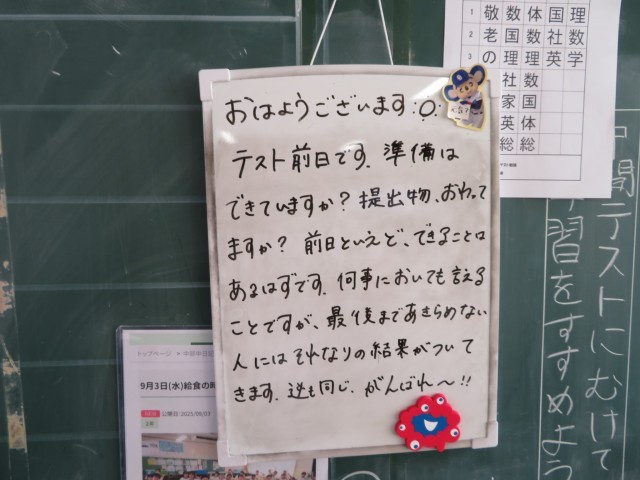 おはようございます
テスト前日です. 準備は
できていますか? 提出物、おわって
ますか? 前日といえど、できることは
あるはずです. 何事においても言える
ことですが、最後まであきらめない
人にはそれなりの結果がついて
きます. 逆も同じ. がんばれ〜!!
1 敬 数 体 国 理
2 老 国 数 社 数
3 の 理 理 英 学
社 数
家 国
英 体
総 総
中間テストにむけて
学習をすすめよう
トップページ
9月3日(水)給食の
NEW 公開日:2025/09/03